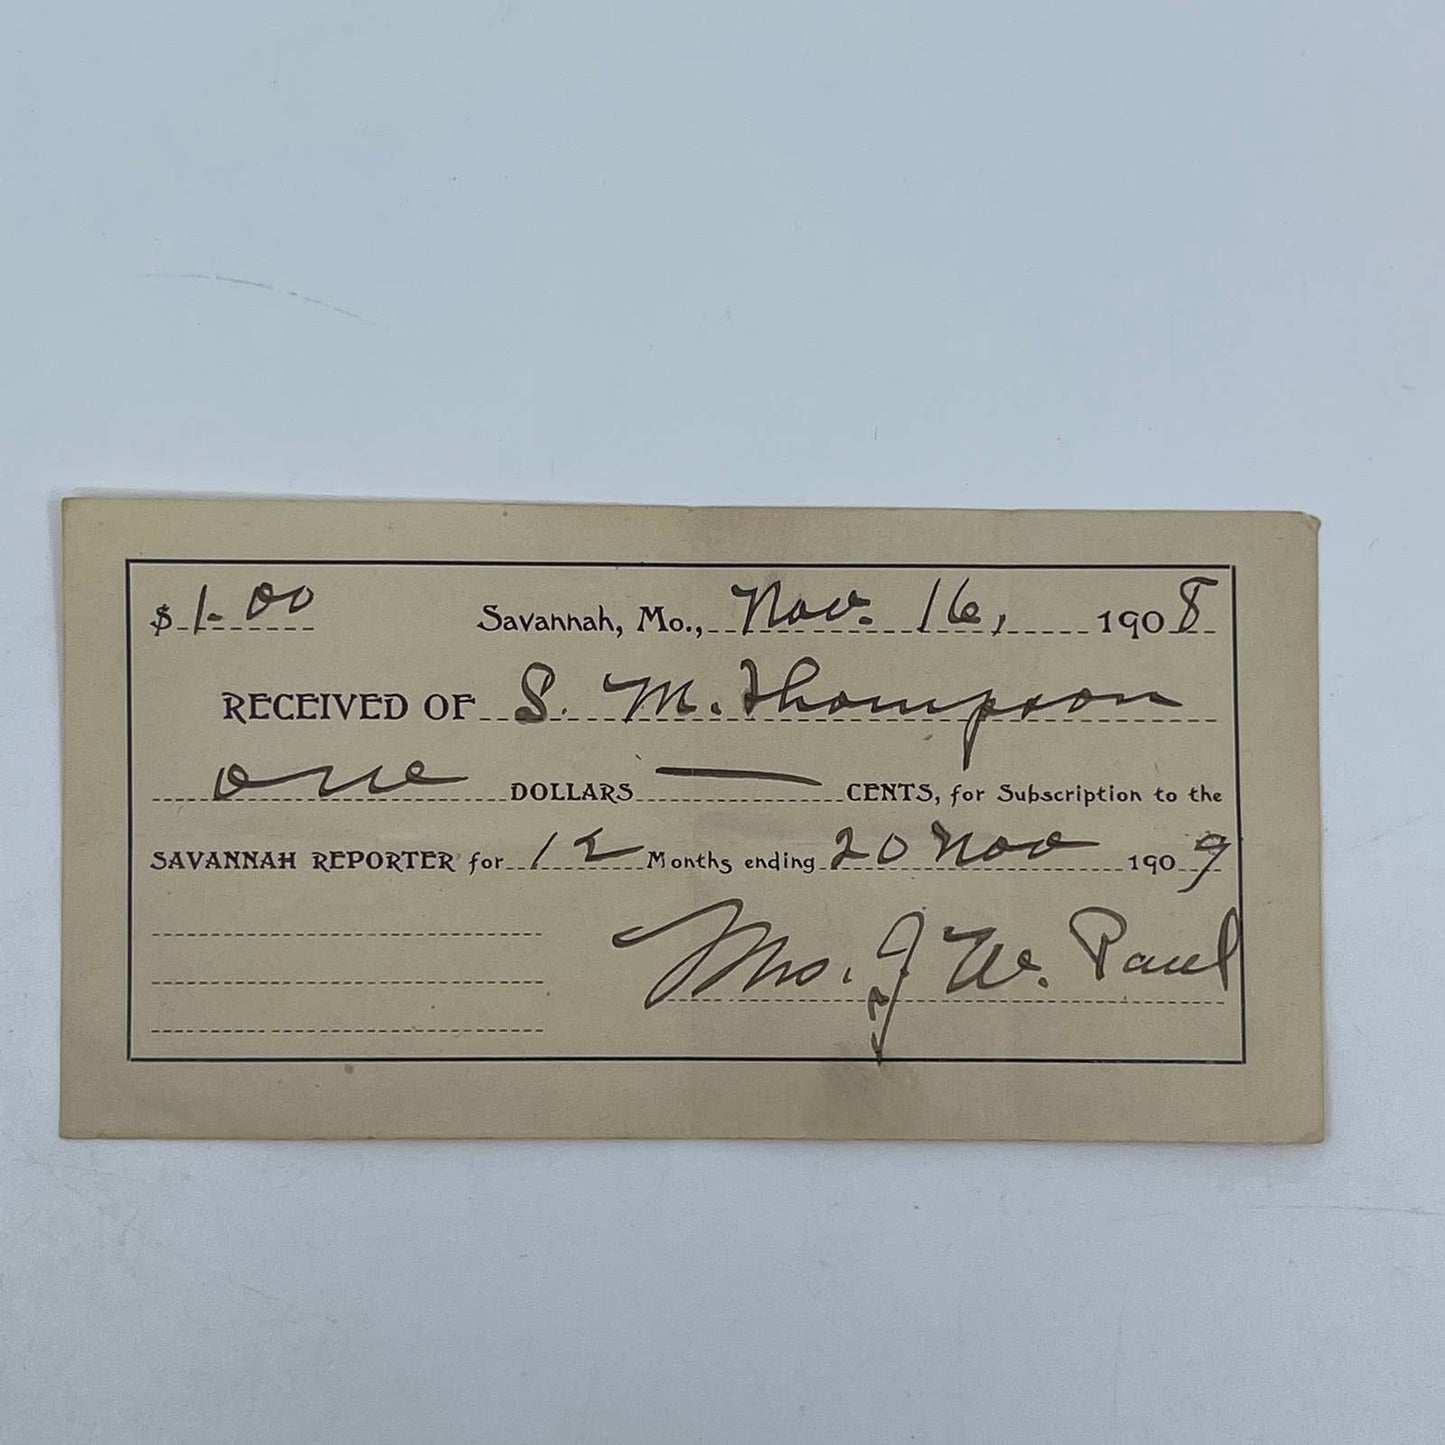 $1.00 Savannah, Mo., Nov. 16, 1908
RECEIVED OF S. M. Thompson
one DOLLARS — CENTS, for Subscription to the
SAVANNAH REPORTER for 12 Months ending 20 Nov 1909
Mrs. J W. Paul